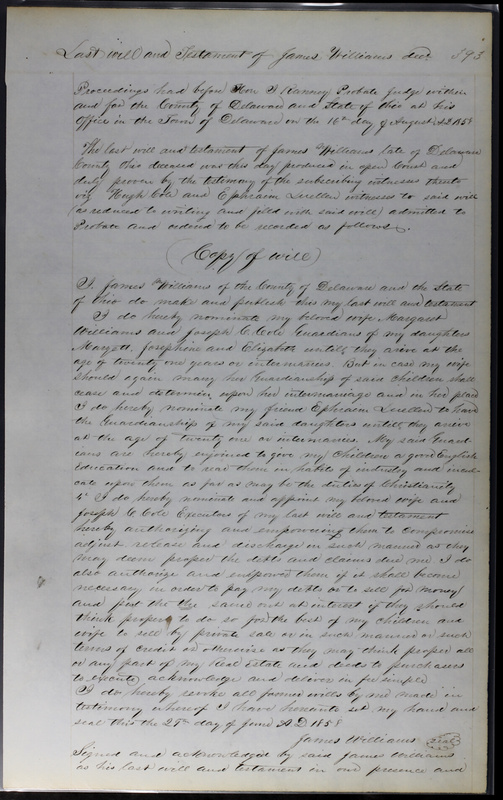 Last will and Testament of James Williams Decd 393
Proceedings had before Hon T Ranney Probate Judge within
and for the County of Delaware and State of Ohio at his
Office in the Town of Delaware on the 16th day of August AD 1858
The last will and testament of James Williams late of Delaware
County Ohio deceased was this day produced in open Court and
duly proven by the testimony of the subscribing witnesses thereto
viz Hugh Cole and Ephraim Luellen witnesses to said will
(as reduced to writing and filed with said will) admitted to
Probate and ordered to be recorded as follows.
(Copy of will)
I, James Williams of the County of Delaware and the State
of Ohio do make and publish this my last will and testament
I do hereby nominate my beloved wife Margaret
Williams and Joseph C. Cole Guardians of my daughters
Margett, Josephine and Elizabeth untill they arive at the
age of twenty one years or intermarries. But in case my wife
should again marry her Guardianship of said children shall
cease and determin upon her intermarriage and in her place
I do hereby nominate my friend Ephraim Luellen to have
the Guardianship of my said daughters untill they arive
at the age of twenty one or intermarries. My said Guard-
ians are hereby enjoined to give my children a good English
Education and to rear them in habits of industry and incul-
cate upon them as far as may be the duties of Christianity
I do hereby nominate and appoint my beloved wife and
Joseph C Cole Executors of my last will and testament
hereby authorizing and empowering them to compromise
adjust release and discharge in such manner as they
may deem proper the debts and claims due me I do
also authorize and empower them if it shall become
necessary in order to pay my debts or to sell for money
and put the the same out at interest if they should
think proper to do so for the best of my children and
wife to sell by private sale or in such manner or such
terms of credit or otherwise as they may think proper all
or any part of my Real Estate and deeds to purchasers
to execute acknowledge and deliver in fee simple
I do hereby revoke all former wills by me made in
testimony whereof I have hereunto set my hand and
seal this the 29th day of June A.D 1858
James Williams seal
Signed and acknowledged by said James Williams
as his last will and testament in our presence and